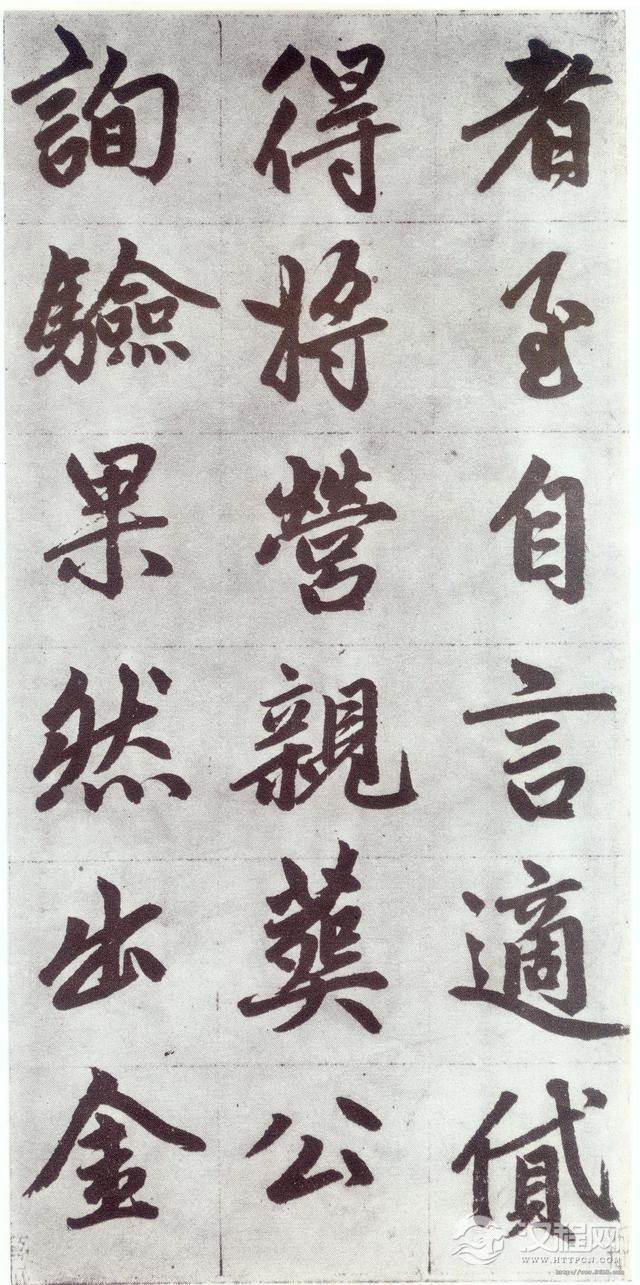 者至自言適貸
得將營親葬公
詢驗果然出金
汉程网
WWW.HTTPCN.COM